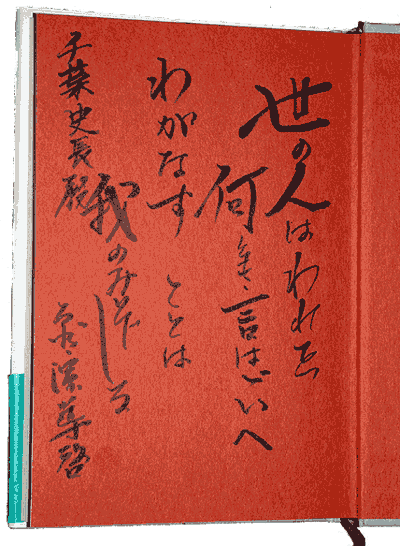 世の人はわれを
何とも言はゞいへ
わがなすことは
我のみぞしる
千葉史長殿